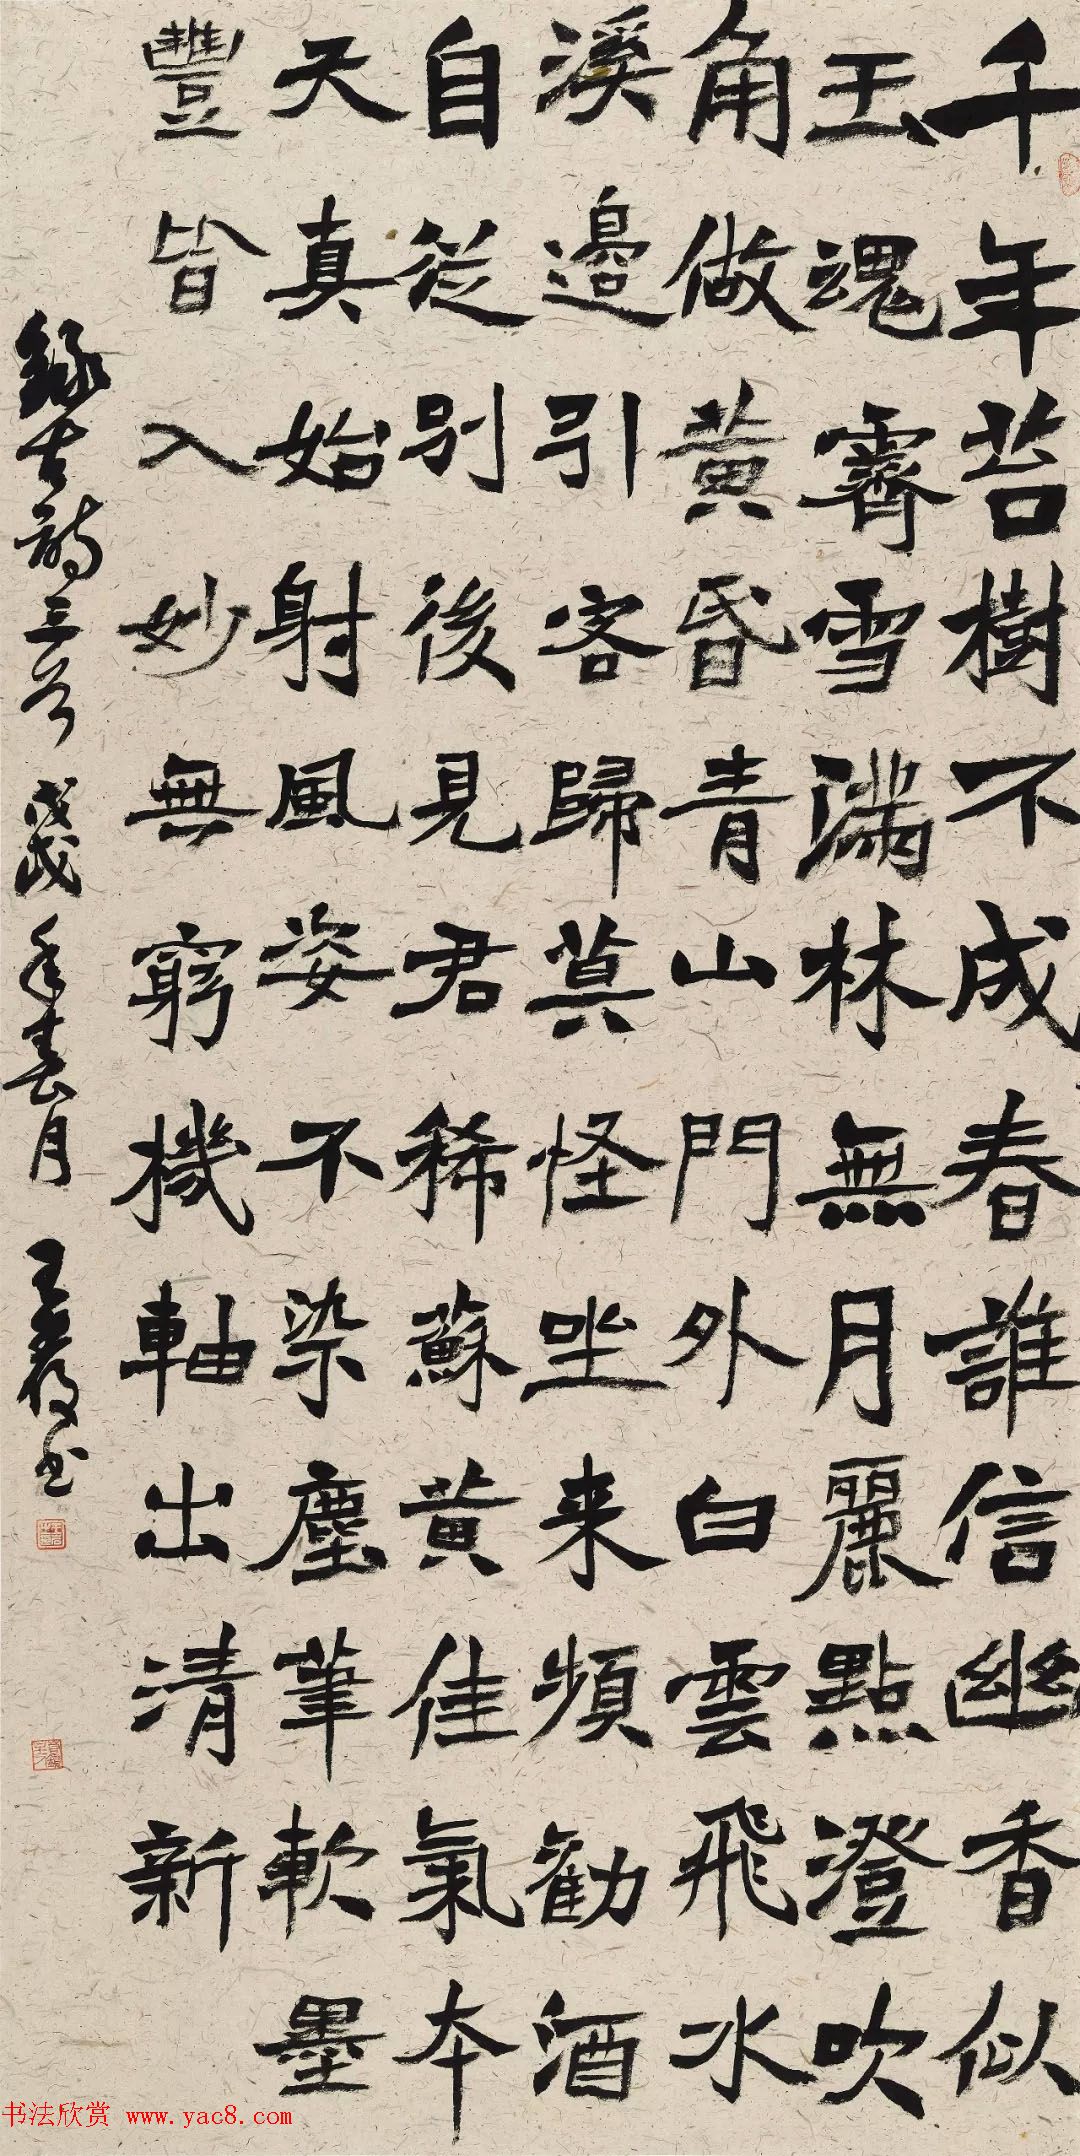 千年苔樹不成春誰信幽香似
玉魂霽雪滿林無月麗點澄吹
角做黄昏青山門外白雲飛水
溪邊引客歸莫怪坐来頻勸酒
自從別後見君稀蘇黄佳氣本
天真始射風姿不染塵筆軟墨
豐皆入妙無窮機軸出清新
錄古詩三首 戊戌年春月 王书
书法欣赏 www.yac8.com